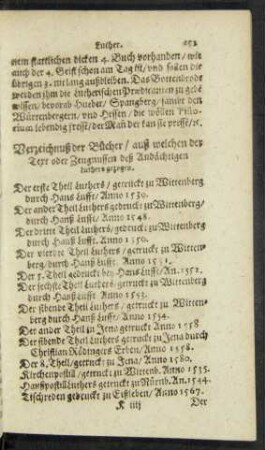 Luther.
nem stattlichen dicken 4. Buch vorhanden / wie
auch der 4. Geist schon am Tag ist / und sollen die
übrigen 3. nit lang außbleiben. Das Gottenbrode
werden ihm die Lutherischen Predicanten zu geben
wissen / bevorab Hueber / Spangberg / sampt den
Würtenbergern / und Hessen / die wöllen
lebendig fresse / der Mañ der kan sie presse / ꝛc.
Verzeichnuß der Bücher / auß welchen der
Text oder Zeugnussen deß Andächtigen
Luthers gezogen.
Der erste Theil Luthers / getruckt zu Wittenberg
durch Hans Lufft / Anno 1550.
Der ander Theil Luthers gedruckt zu Wittenberg /
durch Hanß Lufft / Anno 1548.
Der dritte Theil Luthers / gedruckt zu Wittenberg
durch Hanß Lufft. Anno 1550.
Der vierdte Theil Luthers / getruckt zu Wittenberg / durch Hanß Lufft. Anno 1551.
Der 5. Theil gedruckt bey Hans Lufft / An. 1552.
Der sechste Theil Luthers / getruckt zu Wittenberg
durch Hanß Lufft Anno 1553.
Der sibende Theil Luthers / getruckt zu Wittenberg / durch Hanß Lufft / Anno 1554.
Der ander Theil zu Jena getruckt Anno 1558
Der sibende Theil Luthers getruckt zu Jena durch
Christian Rödingers Erben / Anno 1558.
Der 8. Theil / getruckt zu Jena / Anno 1580.
Kirchenpostill / getruckt zu Wittenb. Anno 1535.
Haußpostill Luthers getruckt zu Nürnb. An. 1544.
Tischreden gedruckt zu Eißleben / Anno 1567.
K iiij Der